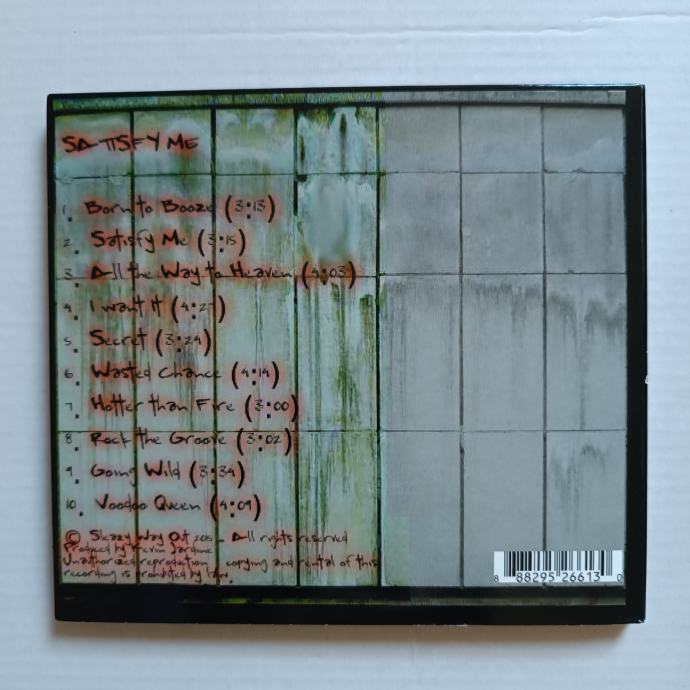 SATISFY ME
1. Born to Booze (3:13)
2. Satisfy Me (3:15)
3. All the Way to Heaven (4:03)
4. I want it
5. Secret (3:29)
6. Wasted Chance (4:14)
7. Hotter than Fire (3:00)
8. Rock the Groove (3:02)
9. Going Wild (3:34)
10. Voodoo Queen (4:09)
© Sleazy Way Out 2015 - All rights reserved
Produced by Kevin Jardine
Unauthorized reproduction, copying and rental of this
recording is prohibited by law.
8 88295 26613 0